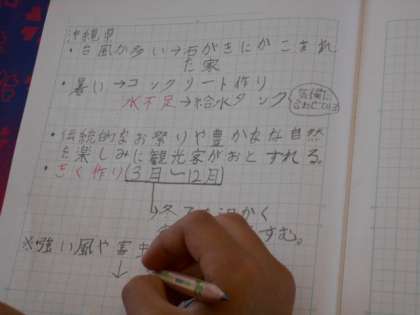 沖縄県
・台風が多い→石がきにかこまれ
た家
・暑い→コンクリート作り
水不足→給水タンク
・伝統的なお祭りや豊かなな自然
を楽しみに観光客がおとずれる。
・きく作り(3月〜12月)
→冬でも温かく
すむ。
※強い風や害虫
↓